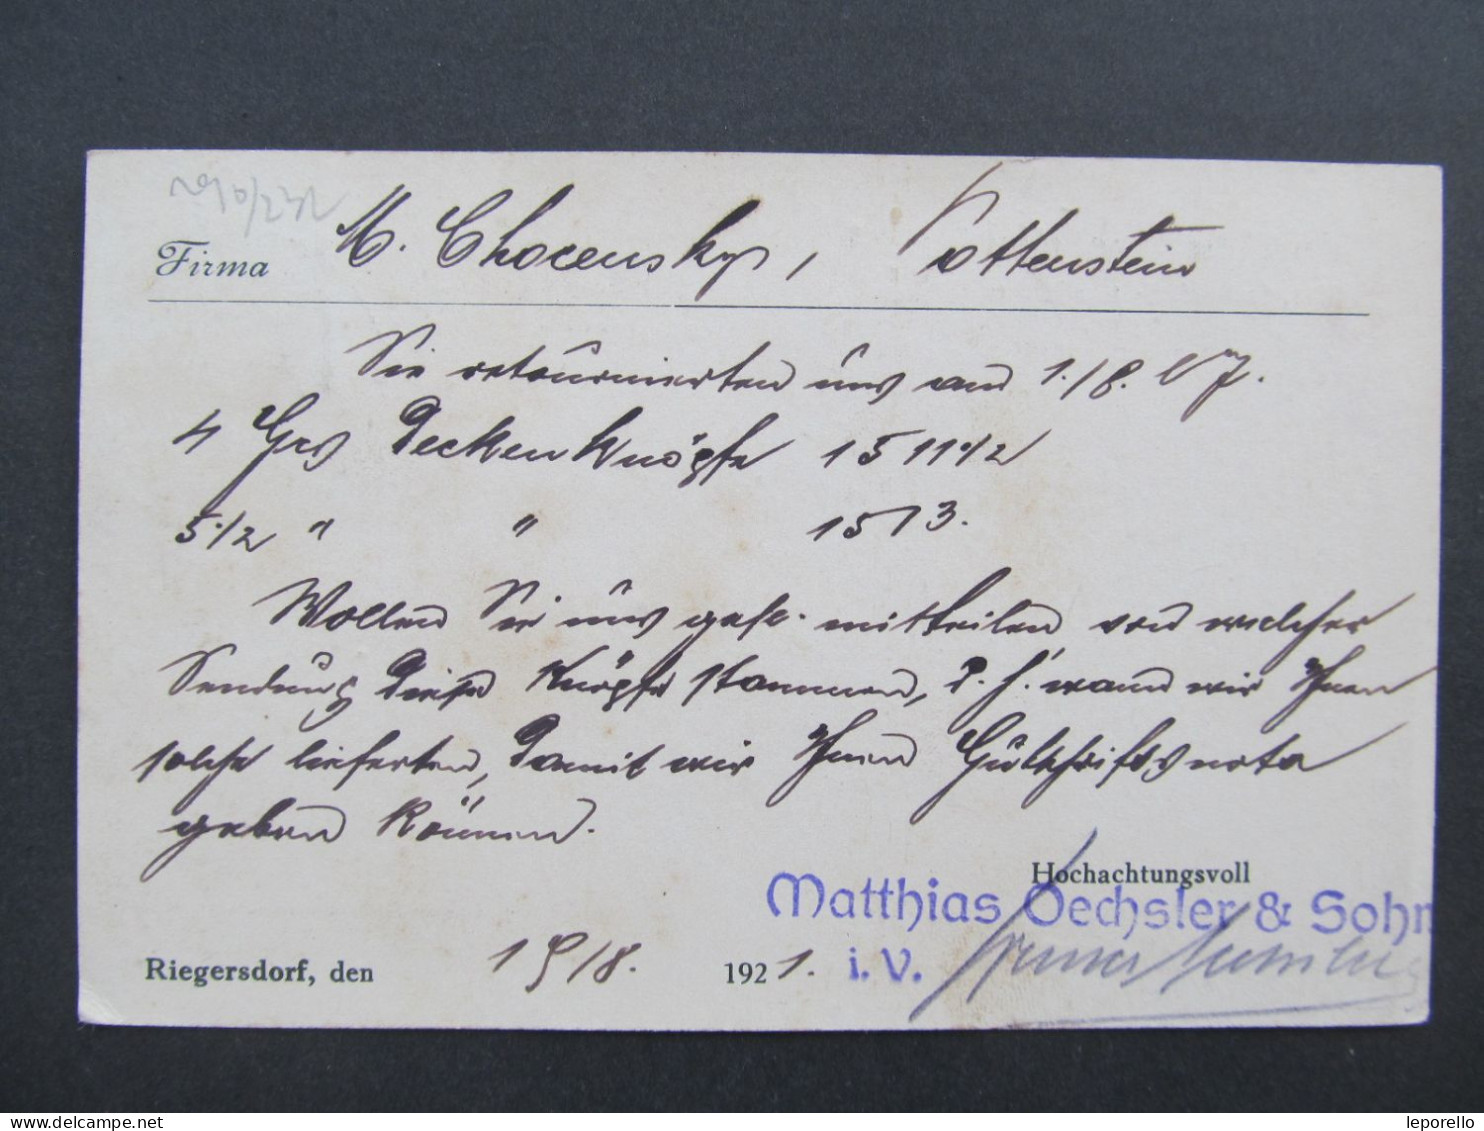 Firma M. Chocensky, Pottenstein
Sie retournierten uns am 1./8.
4 Grs Deckenknöpfe 15 11 1/2
5 1/2 " " 1513.
Wollen Sie uns gefl. mitteilen von welcher
Sendung diese Knöpfe stammen, d. h. wann wir Ihnen
solche lieferten, damit wir Ihnen Gutschriftsnota
geben können.
Hochachtungsvoll
Matthias Oechsler & Sohn
Riegersdorf, den 19/8. 1921.
i. V.
leporello